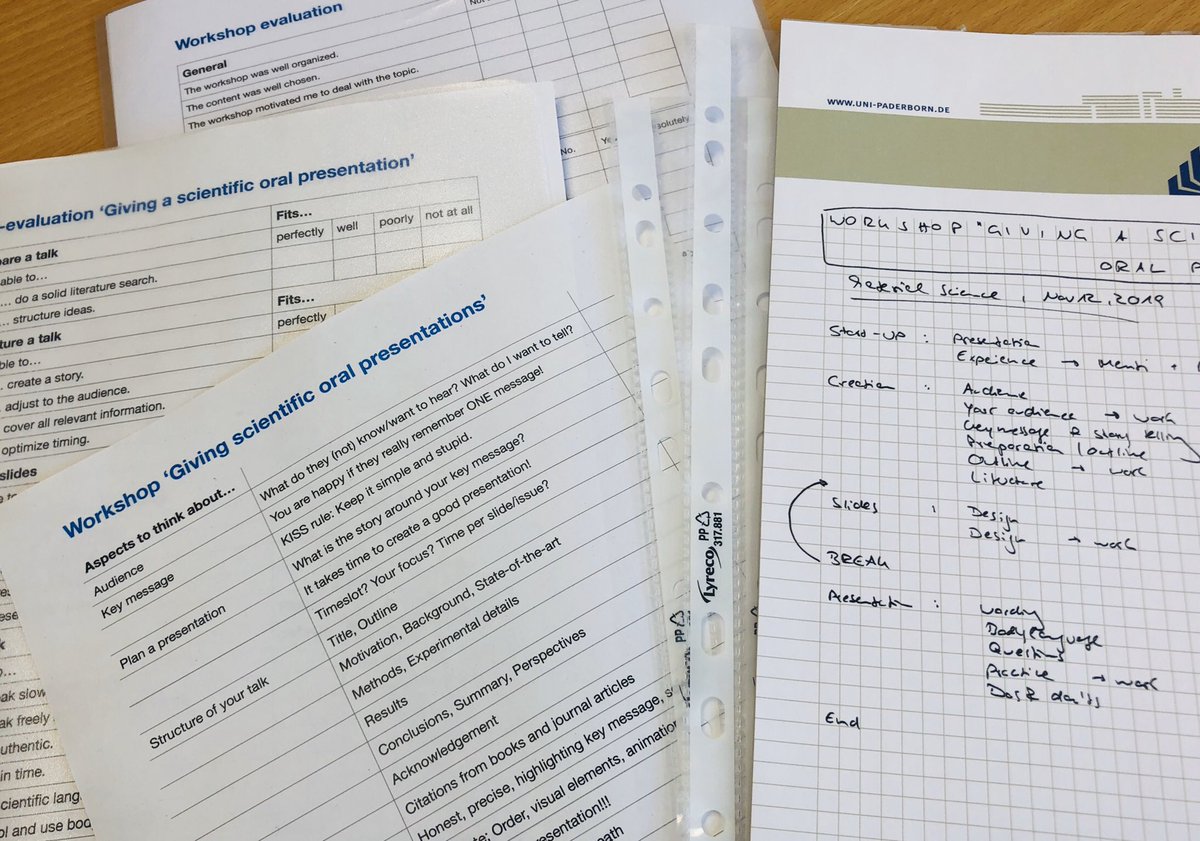 Workshop evaluation
General
The workshop was well organized.
The content was well chosen.
The workshop motivated me to deal with the topic.
No.
-evaluation 'Giving a scientific oral presentation'
Fits...
perfectly well poorly not at all
are a talk
able to...
... do a solid literature search.
... structure ideas.
Fits...
perfectly
ture a talk
ble to...
. create a story.
adjust to the audience.
cover all relevant information.
optimize timing.
slides
eak slow
ak freely
uthentic.
in time.
cientific lang
ol and use bod
Workshop 'Giving scientific oral presentations'
Aspects to think about...
Audience
What do they (not) know/want to hear? What do I want to tell?
Key message
You are happy if they really remember ONE message!
KISS rule: Keep it simple and stupid.
What is the story around your key message?
Plan a presentation
It takes time to create a good presentation!
Timeslot? Your focus? Time per slide/issue?
Structure of your talk
Title, Outline
Motivation, Background, State-of-the-art
Methods, Experimental details
Results
Conclusions, Summary, Perspectives
Acknowledgement
Citations from books and journal articles
Honest, precise, highlighting key message,
Order, visual elements, animation
esentation!!!
Lyreco PP 317.881
PP
WWW.UNI-PADERBORN.DE
WORKSHOP "GIVING A SCI
ORAL P
Material Science, Nov 12, 2019
Start-up : Presentation
Experience → Menti +
Creation : Audience
Your audience → work
Key message & story telling
Preparation / outline
Outline → work
Literature
Slides : Design
Design → work
BREAK
Presentation : Wording
Body language
Questions
Practice → work
Dos & don'ts
End